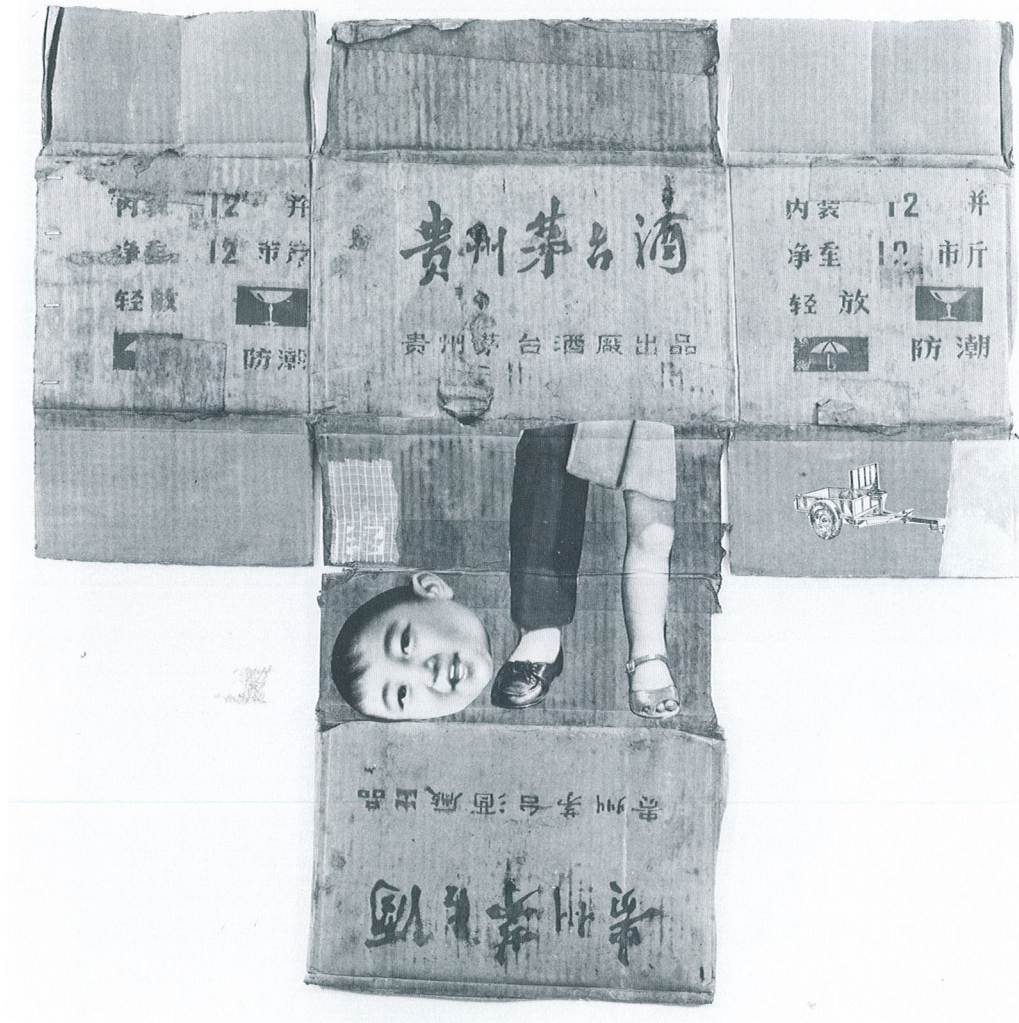 内装 12 并
净重 12 市斤
轻放
防潮
贵州茅台酒
贵州茅台酒厰出品
内装 12 并
净重 12 市斤
轻放
防潮
贵州茅台酒厰出品
贵州茅台酒